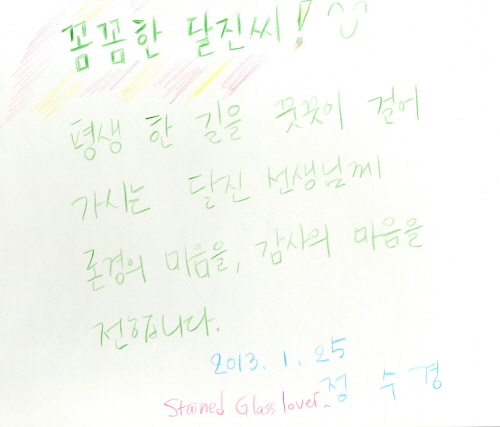 꼼꼼한 달진씨!
평생 한 길을 꿋꿋이 걸어
가시는 달진 선생님께
존경의 마음을, 감사의 마음을
전합니다.
2013. 1. 25
정 수 경
Stained Glass lover.